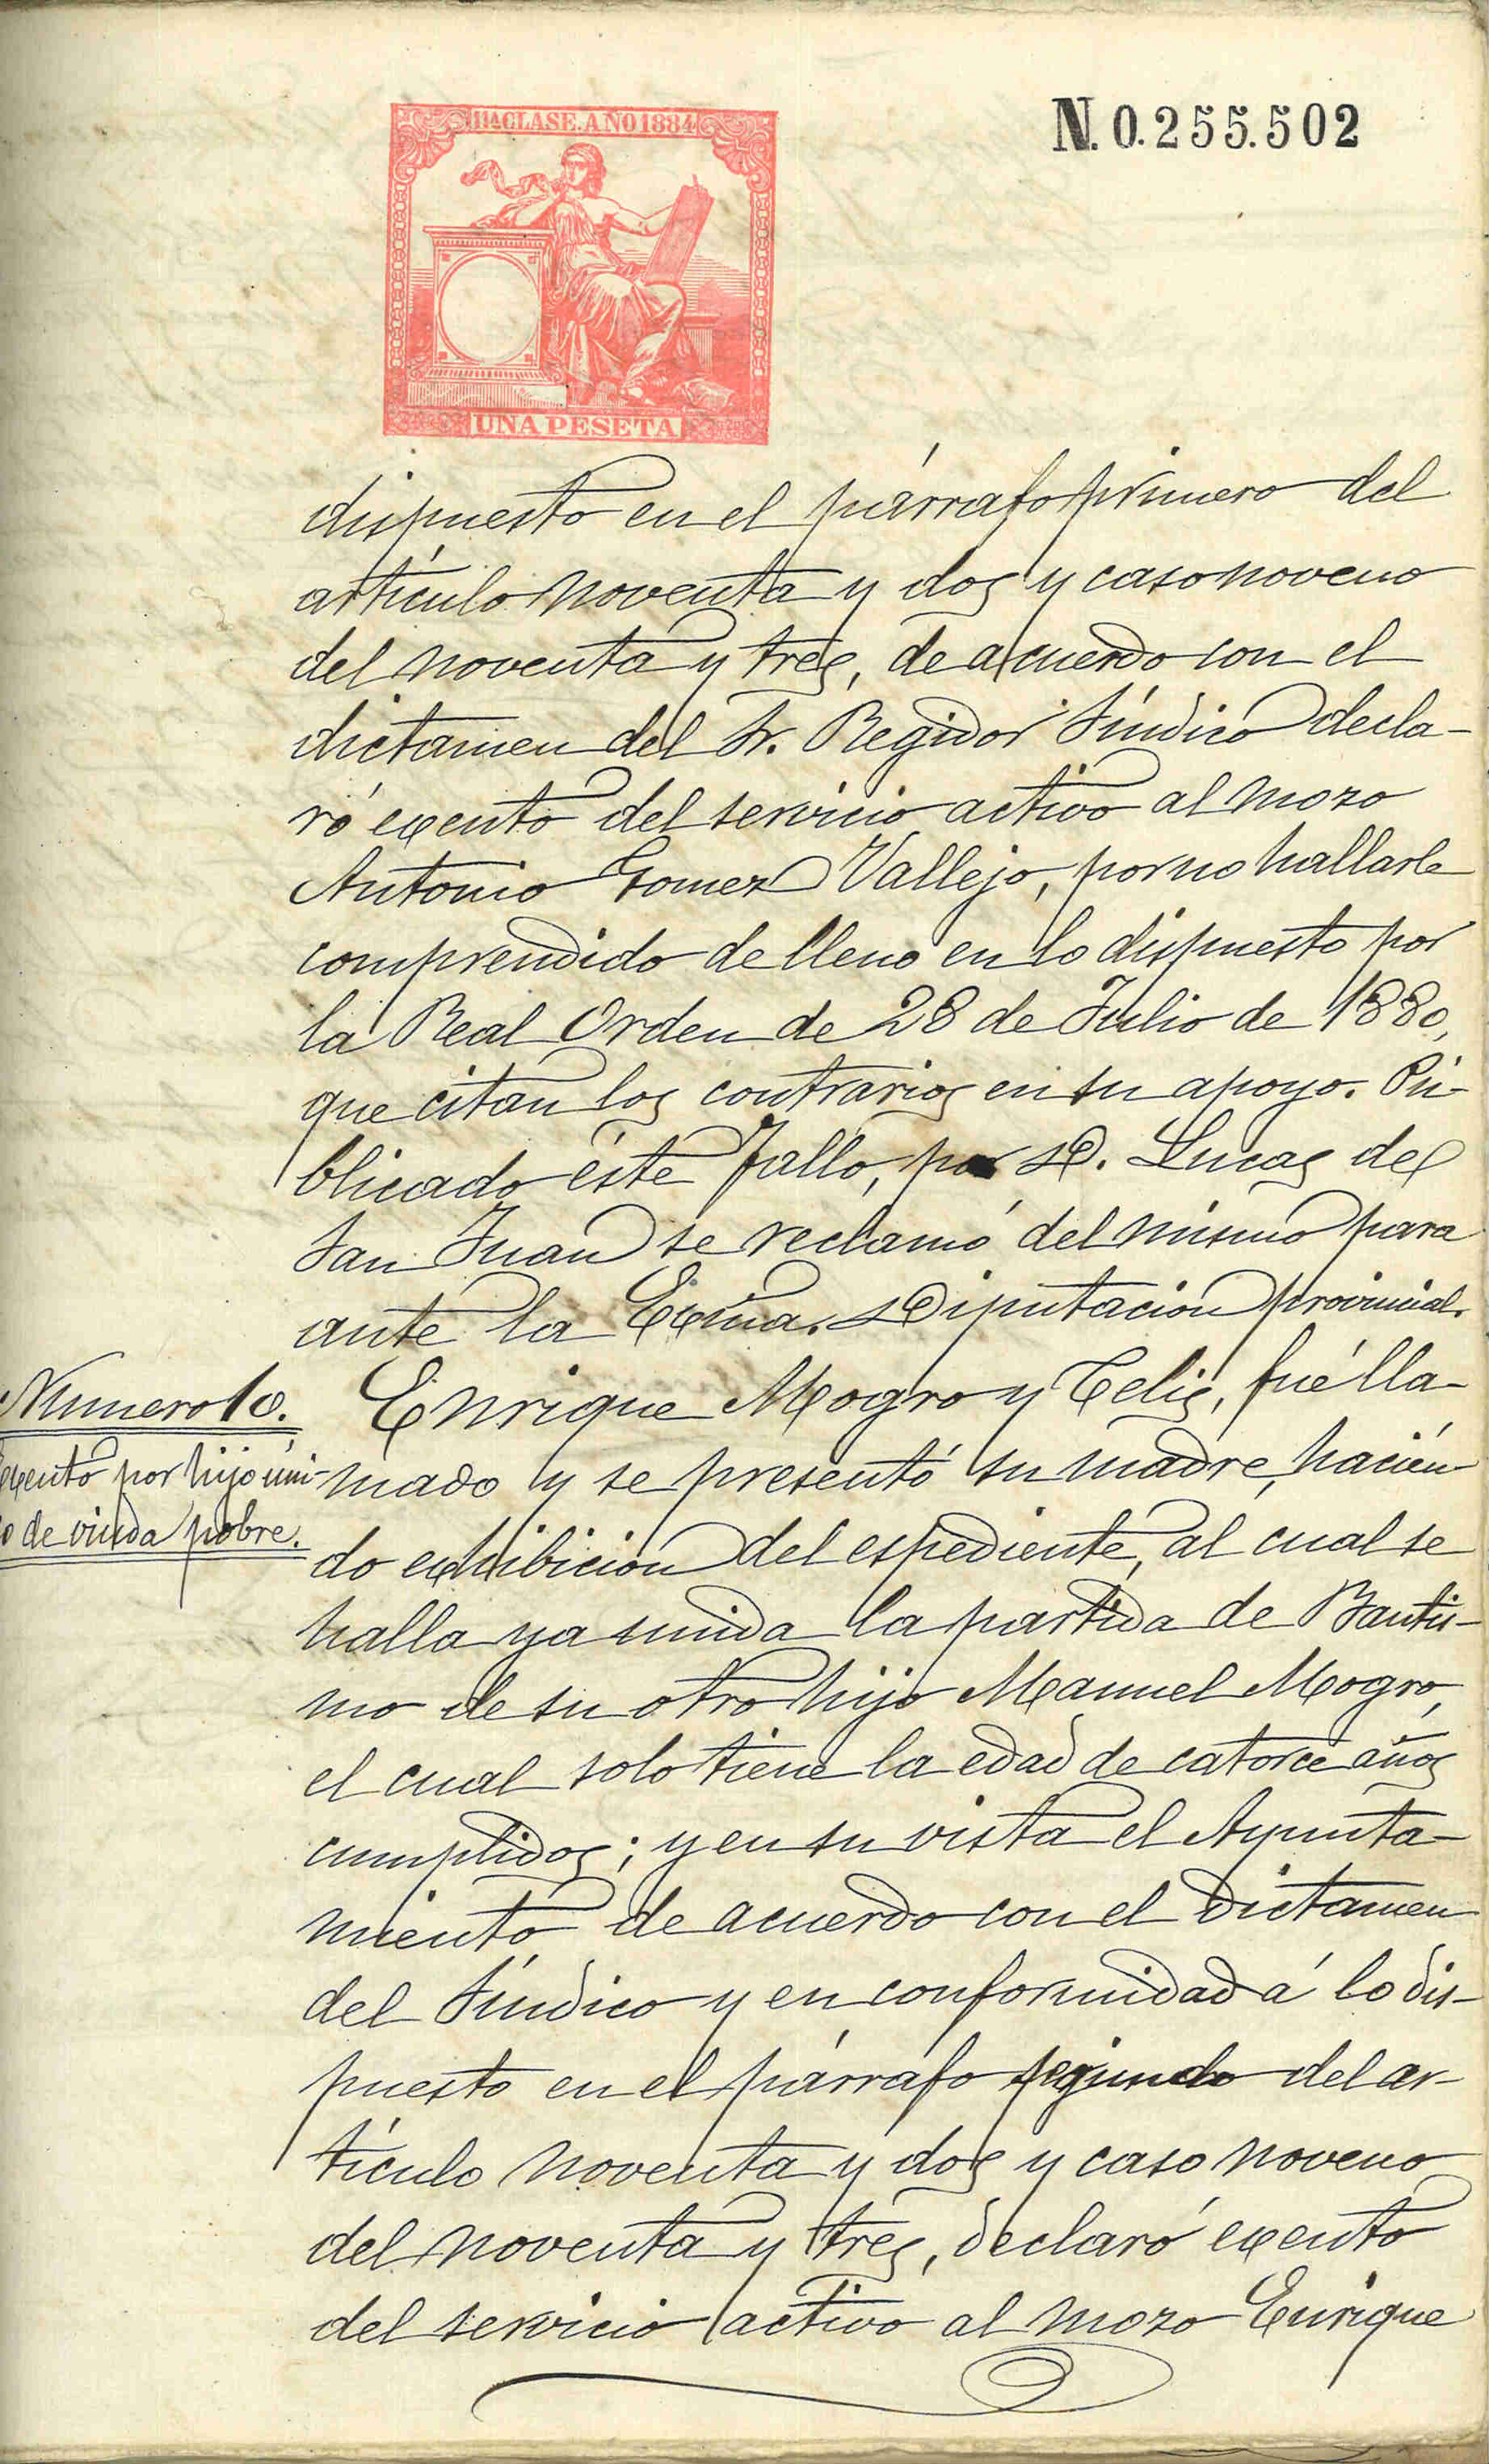 11ª CLASE. AÑO 1884
N. 0.255.502
UNA PESETA
dispuesto en el párrafo primero del
artículo noventa y dos y caso noveno
del noventa y tres, de acuerdo con el
dictamen del Sr. Regidor Síndico decla-
ró exento del servicio activo al mozo
Antonio Gomez Vallejo, por no hallarle
comprendido de lleno en lo dispuesto por
la Real Orden de 28 de Julio de 1880,
que citan los contrarios en su apoyo. Pú-
blicado éste fallo, por D. Lucas del
San Juan se reclamó del mismo para
ante la Exma. Diputación provincial.
Numero 10.
Exento por hijo úni-
co de viuda pobre.
Enrique Mogro y Celis, fué lla-
mado y se presentó su madre, hacién-
do exhibición del espediente, al cual se
halla ya unida la partida de Bautis-
mo de su otro hijo Manuel Mogro,
el cual solo tiene la edad de catorce años
cumplidos; y en su vista el Ayunta-
miento de acuerdo con el dictamen
del Síndico y en conformidad á lo dis-
puesto en el párrafo segundo del ar-
tículo noventa y dos y caso noveno
del noventa y tres, declaró exento
del servicio activo al mozo Enrique